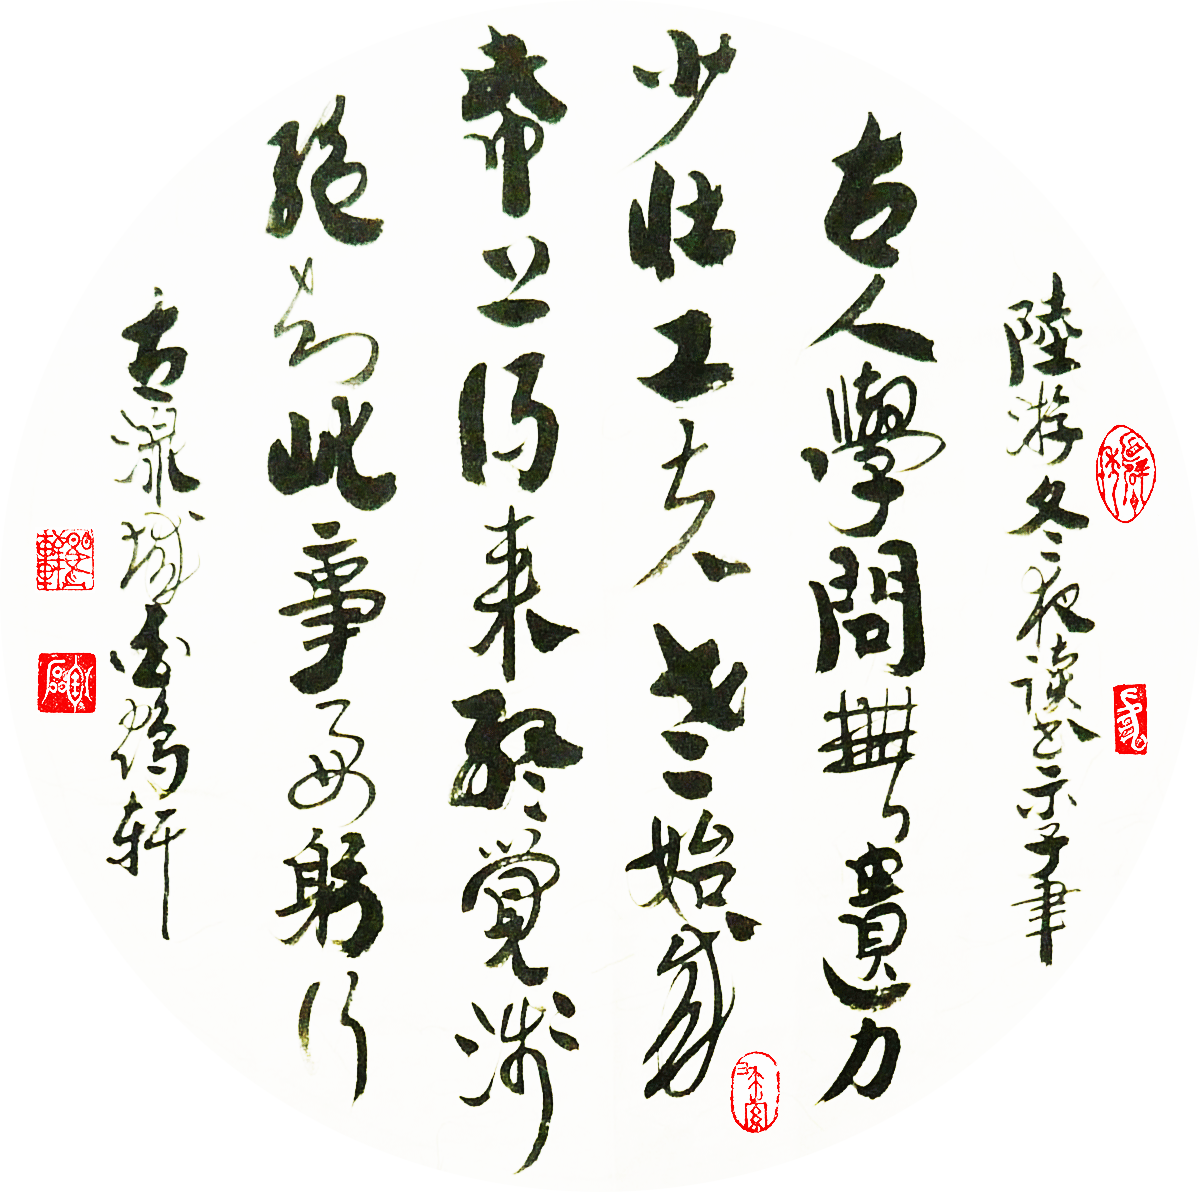 陸游冬夜讀书示子聿
古人學問無遺力
少壯工夫老始成
帋上得来終覺淺
絕知此事要躬行
古城鶴轩